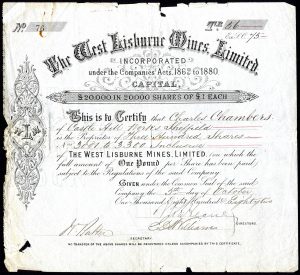 The West Lisburne Mines, Limited.
INCORPORATED
under the Companies' Acts, 1862 to 1880.
CAPITAL,
£20,000 IN 20,000 SHARES OF £1 EACH
This is to Certify that Charles Chambers
of Castle Hill Works Sheffield
is the Proprietor of Three Hundred Shares
Nos 3001 to 3300 Inclusive
of THE WEST LISBURNE MINES, LIMITED, on which the
sum of One Pound per Share has been paid,
subject to the Regulations of the said Company.
GIVEN under the Common Seal of the said
Company, the day of
One Thousand Eight Hundred and Eighty
DIRECTORS.
SECRETARY.
NO TRANSFER OF THE ABOVE SHARES WILL BE REGISTERED UNLESS ACCOMPANIED BY THIS CERTIFICATE.